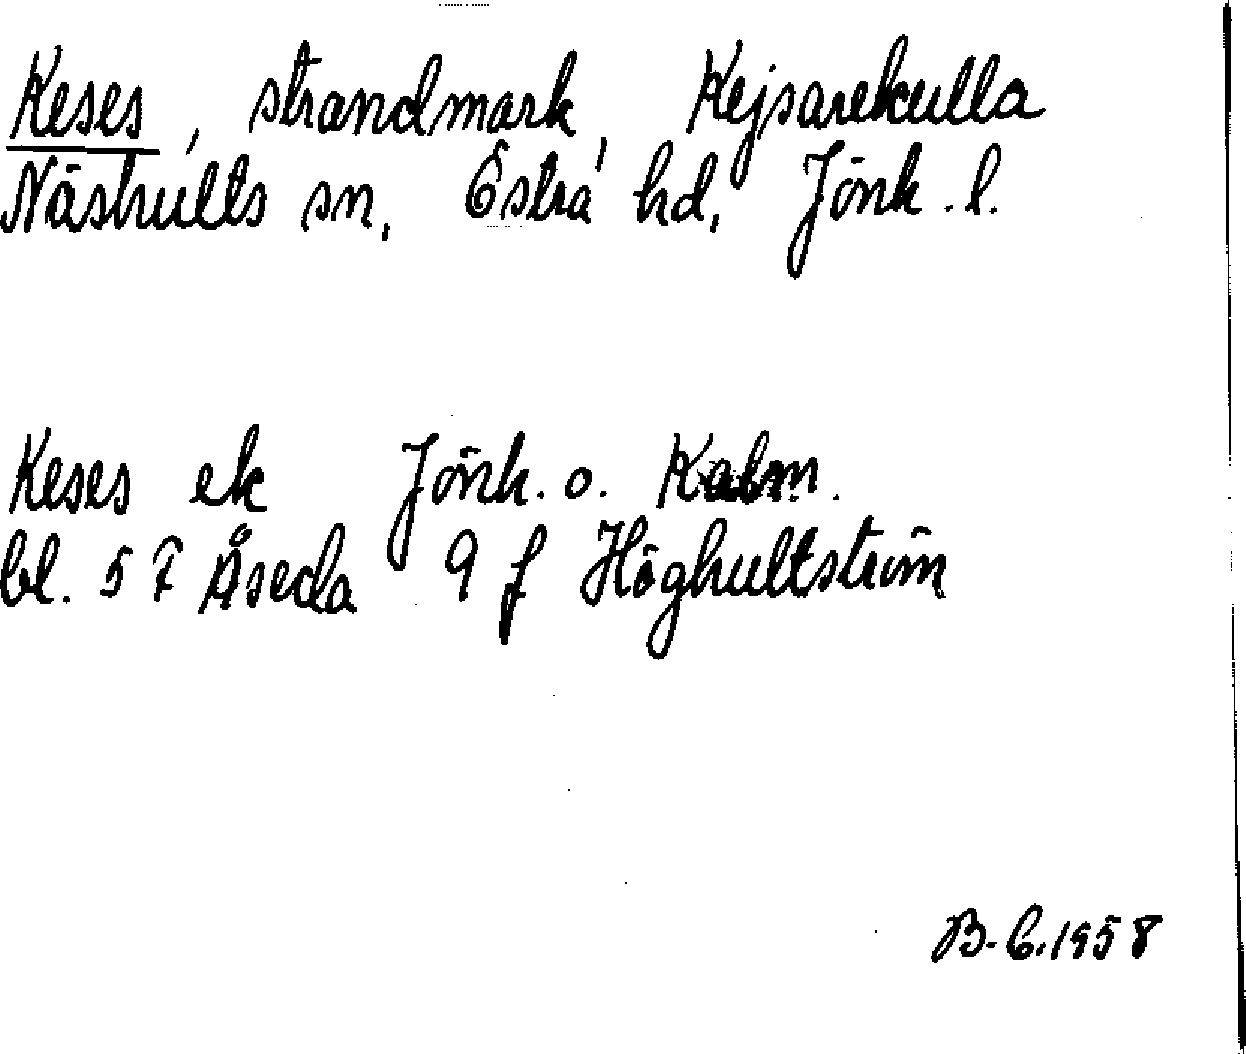 Keses, strandmark, Kejsarekulla
Näshults sn, Östra hd, Jönk. l.
Keses ek Jönk. o. Kalm.
bl. 5 F Åseda 9 f Höghultström
B-C.1958